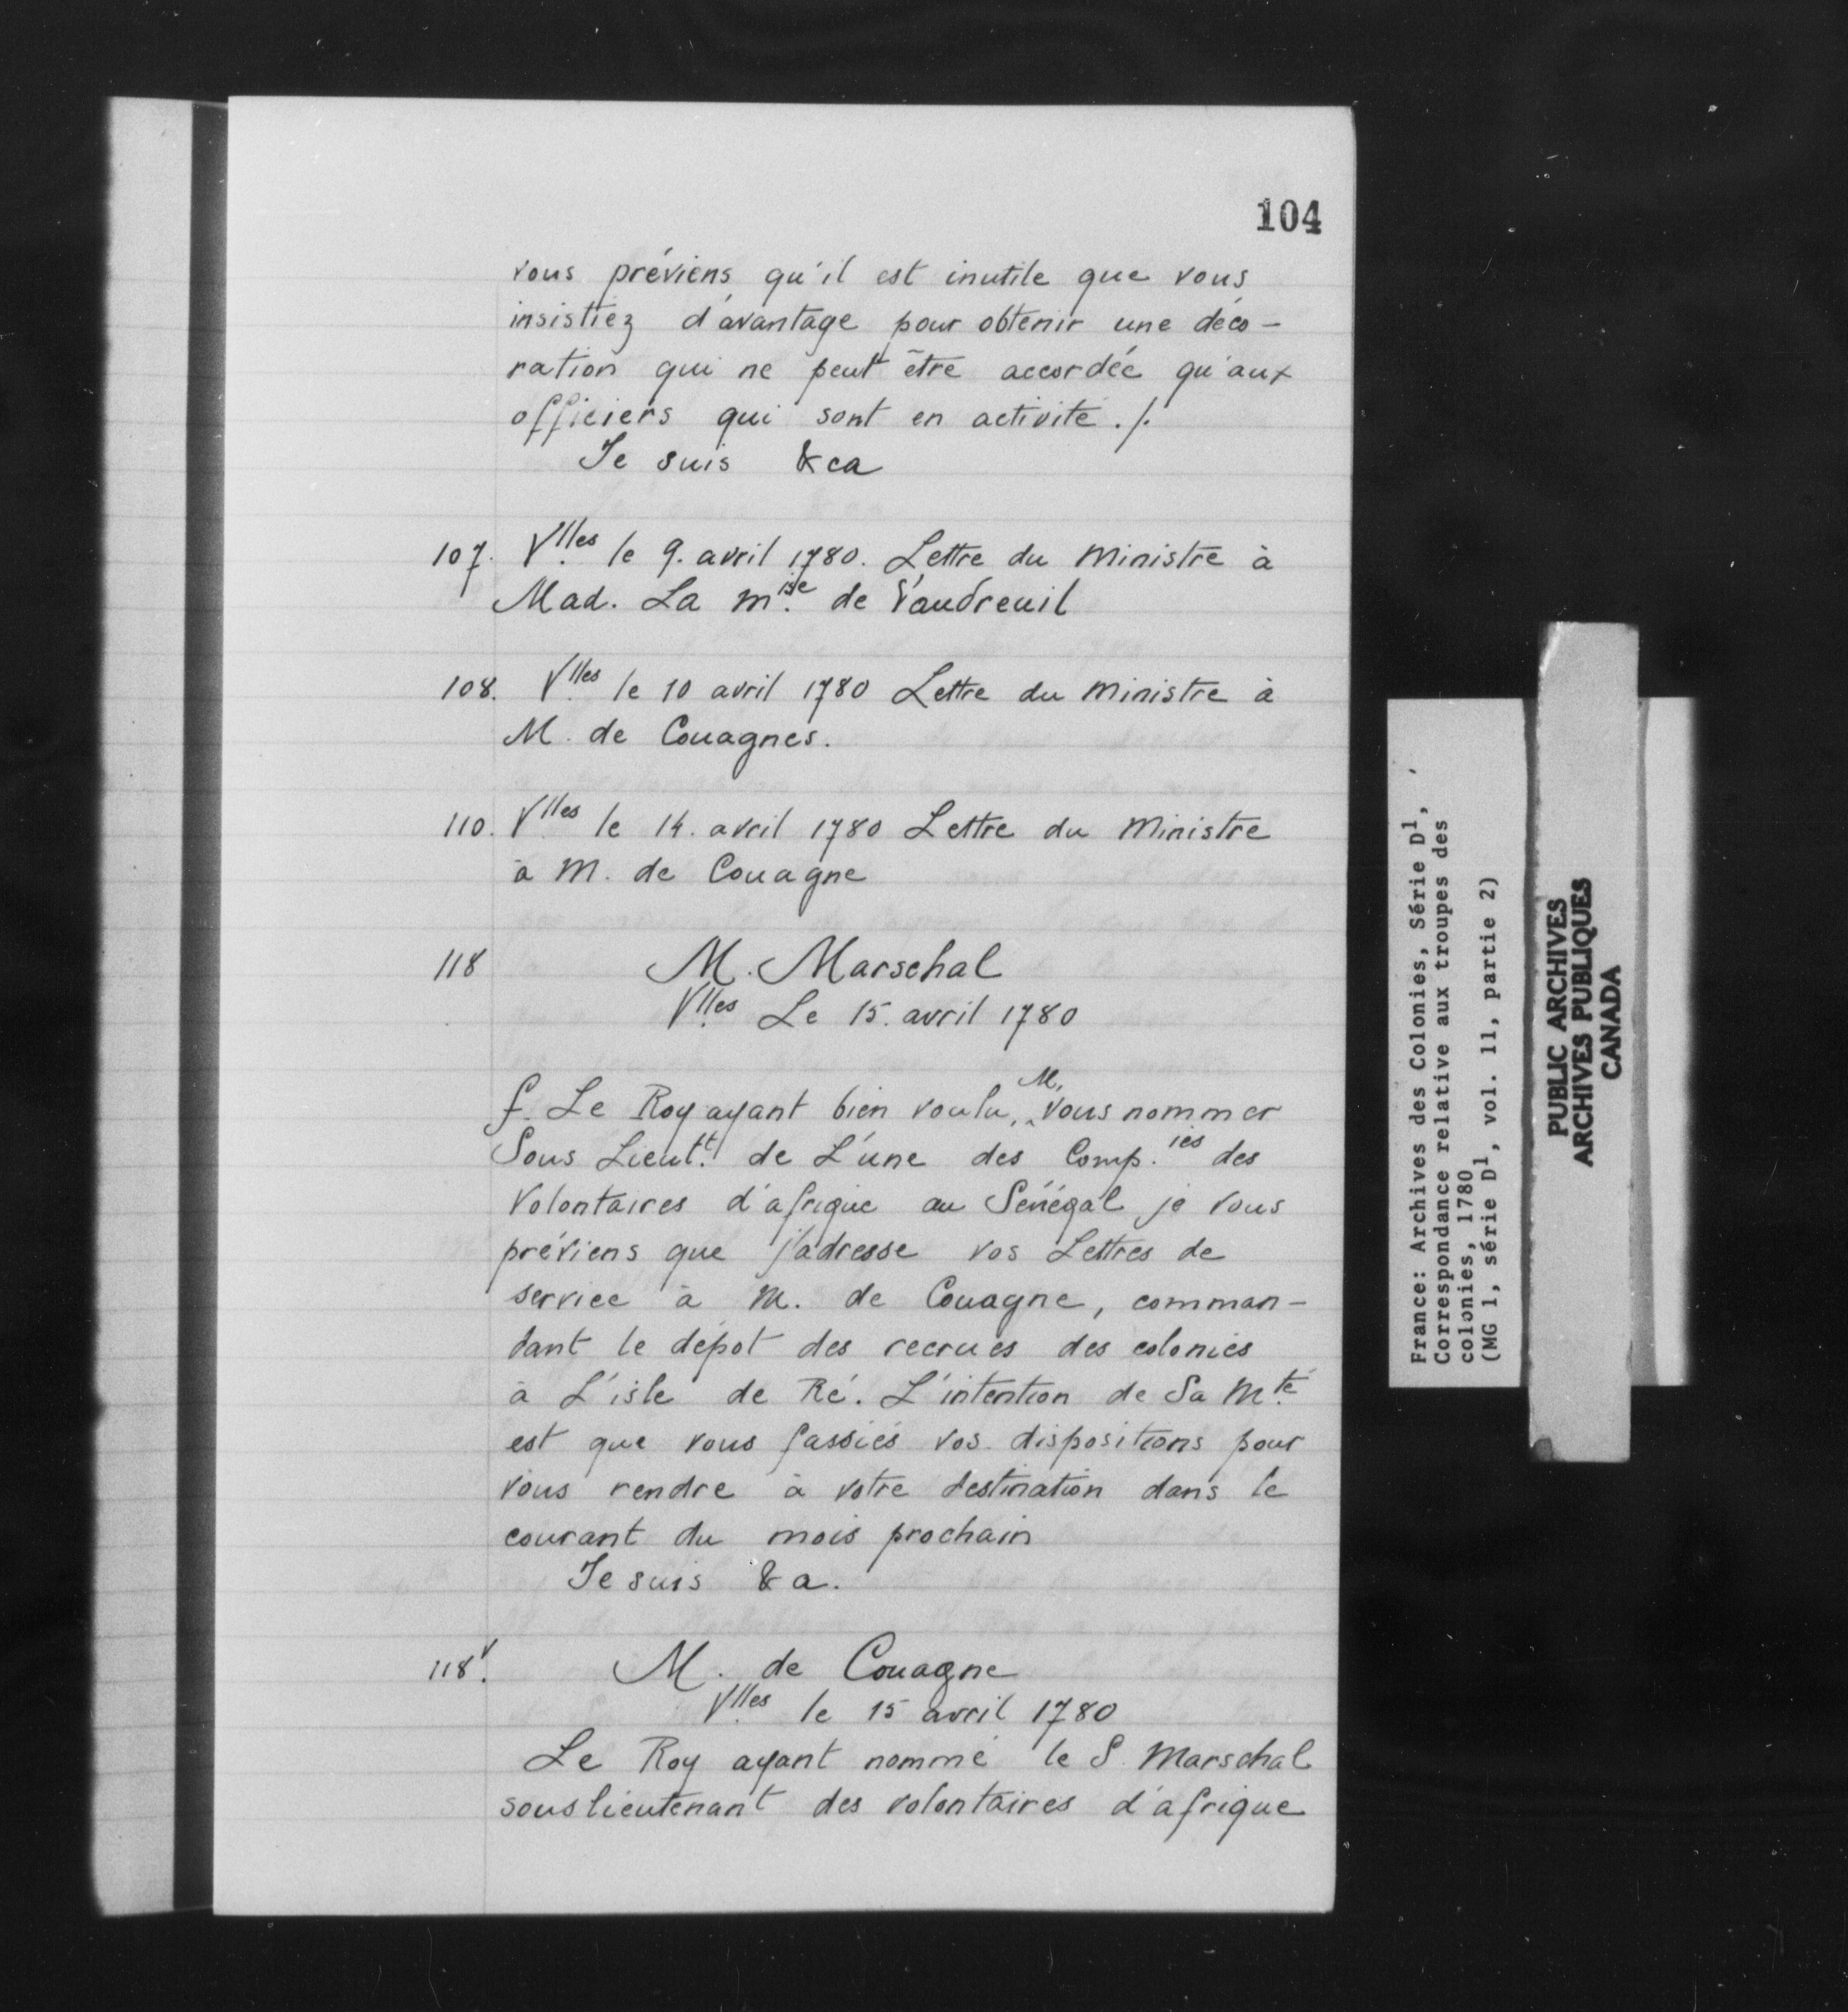 104
vous préviens qu'il est inutile que vous
insistiez d'avantage pour obtenir une déco-
ration qui ne peut être accordée qu'aux
officiers qui sont en activité ./.
Je suis &ca
107. Vlles le 9. avril 1780. Lettre du Ministre à
Mad. La mise de Vaudreuil
108. Vlles le 10 avril 1780 Lettre du Ministre à
M. de Couagnes.
110. Vlles le 14. avril 1780 Lettre du Ministre
à M. de Couagne
118 M. Marschal
Vlles Le 15. avril 1780
f. Le Roy ayant bien voulu, M, vous nommer
Sous Lieutt. de L'une des Comp.ies des
Volontaires d'afrique au Sénégal je vous
préviens que j'adresse vos Lettres de
service à M. de Couagne, comman-
dant le dépot des recrues des colonies
à L'isle de Ré. L'intention de Sa Mté.
est que vous fassiés vos dispositions pour
vous rendre à votre destination dans le
courant du mois prochain
Je suis &a.
118v. M. de Couagne
Vlles le 15 avril 1780
Le Roy ayant nommé le S. Marschal
souslieutenant des volontaires d'afrique
France: Archives des Colonies, Série D1,
Correspondance relative aux troupes des
colonies, 1780
(MG 1, série D1, vol. 11, partie 2)
PUBLIC ARCHIVES
ARCHIVES PUBLIQUES
CANADA